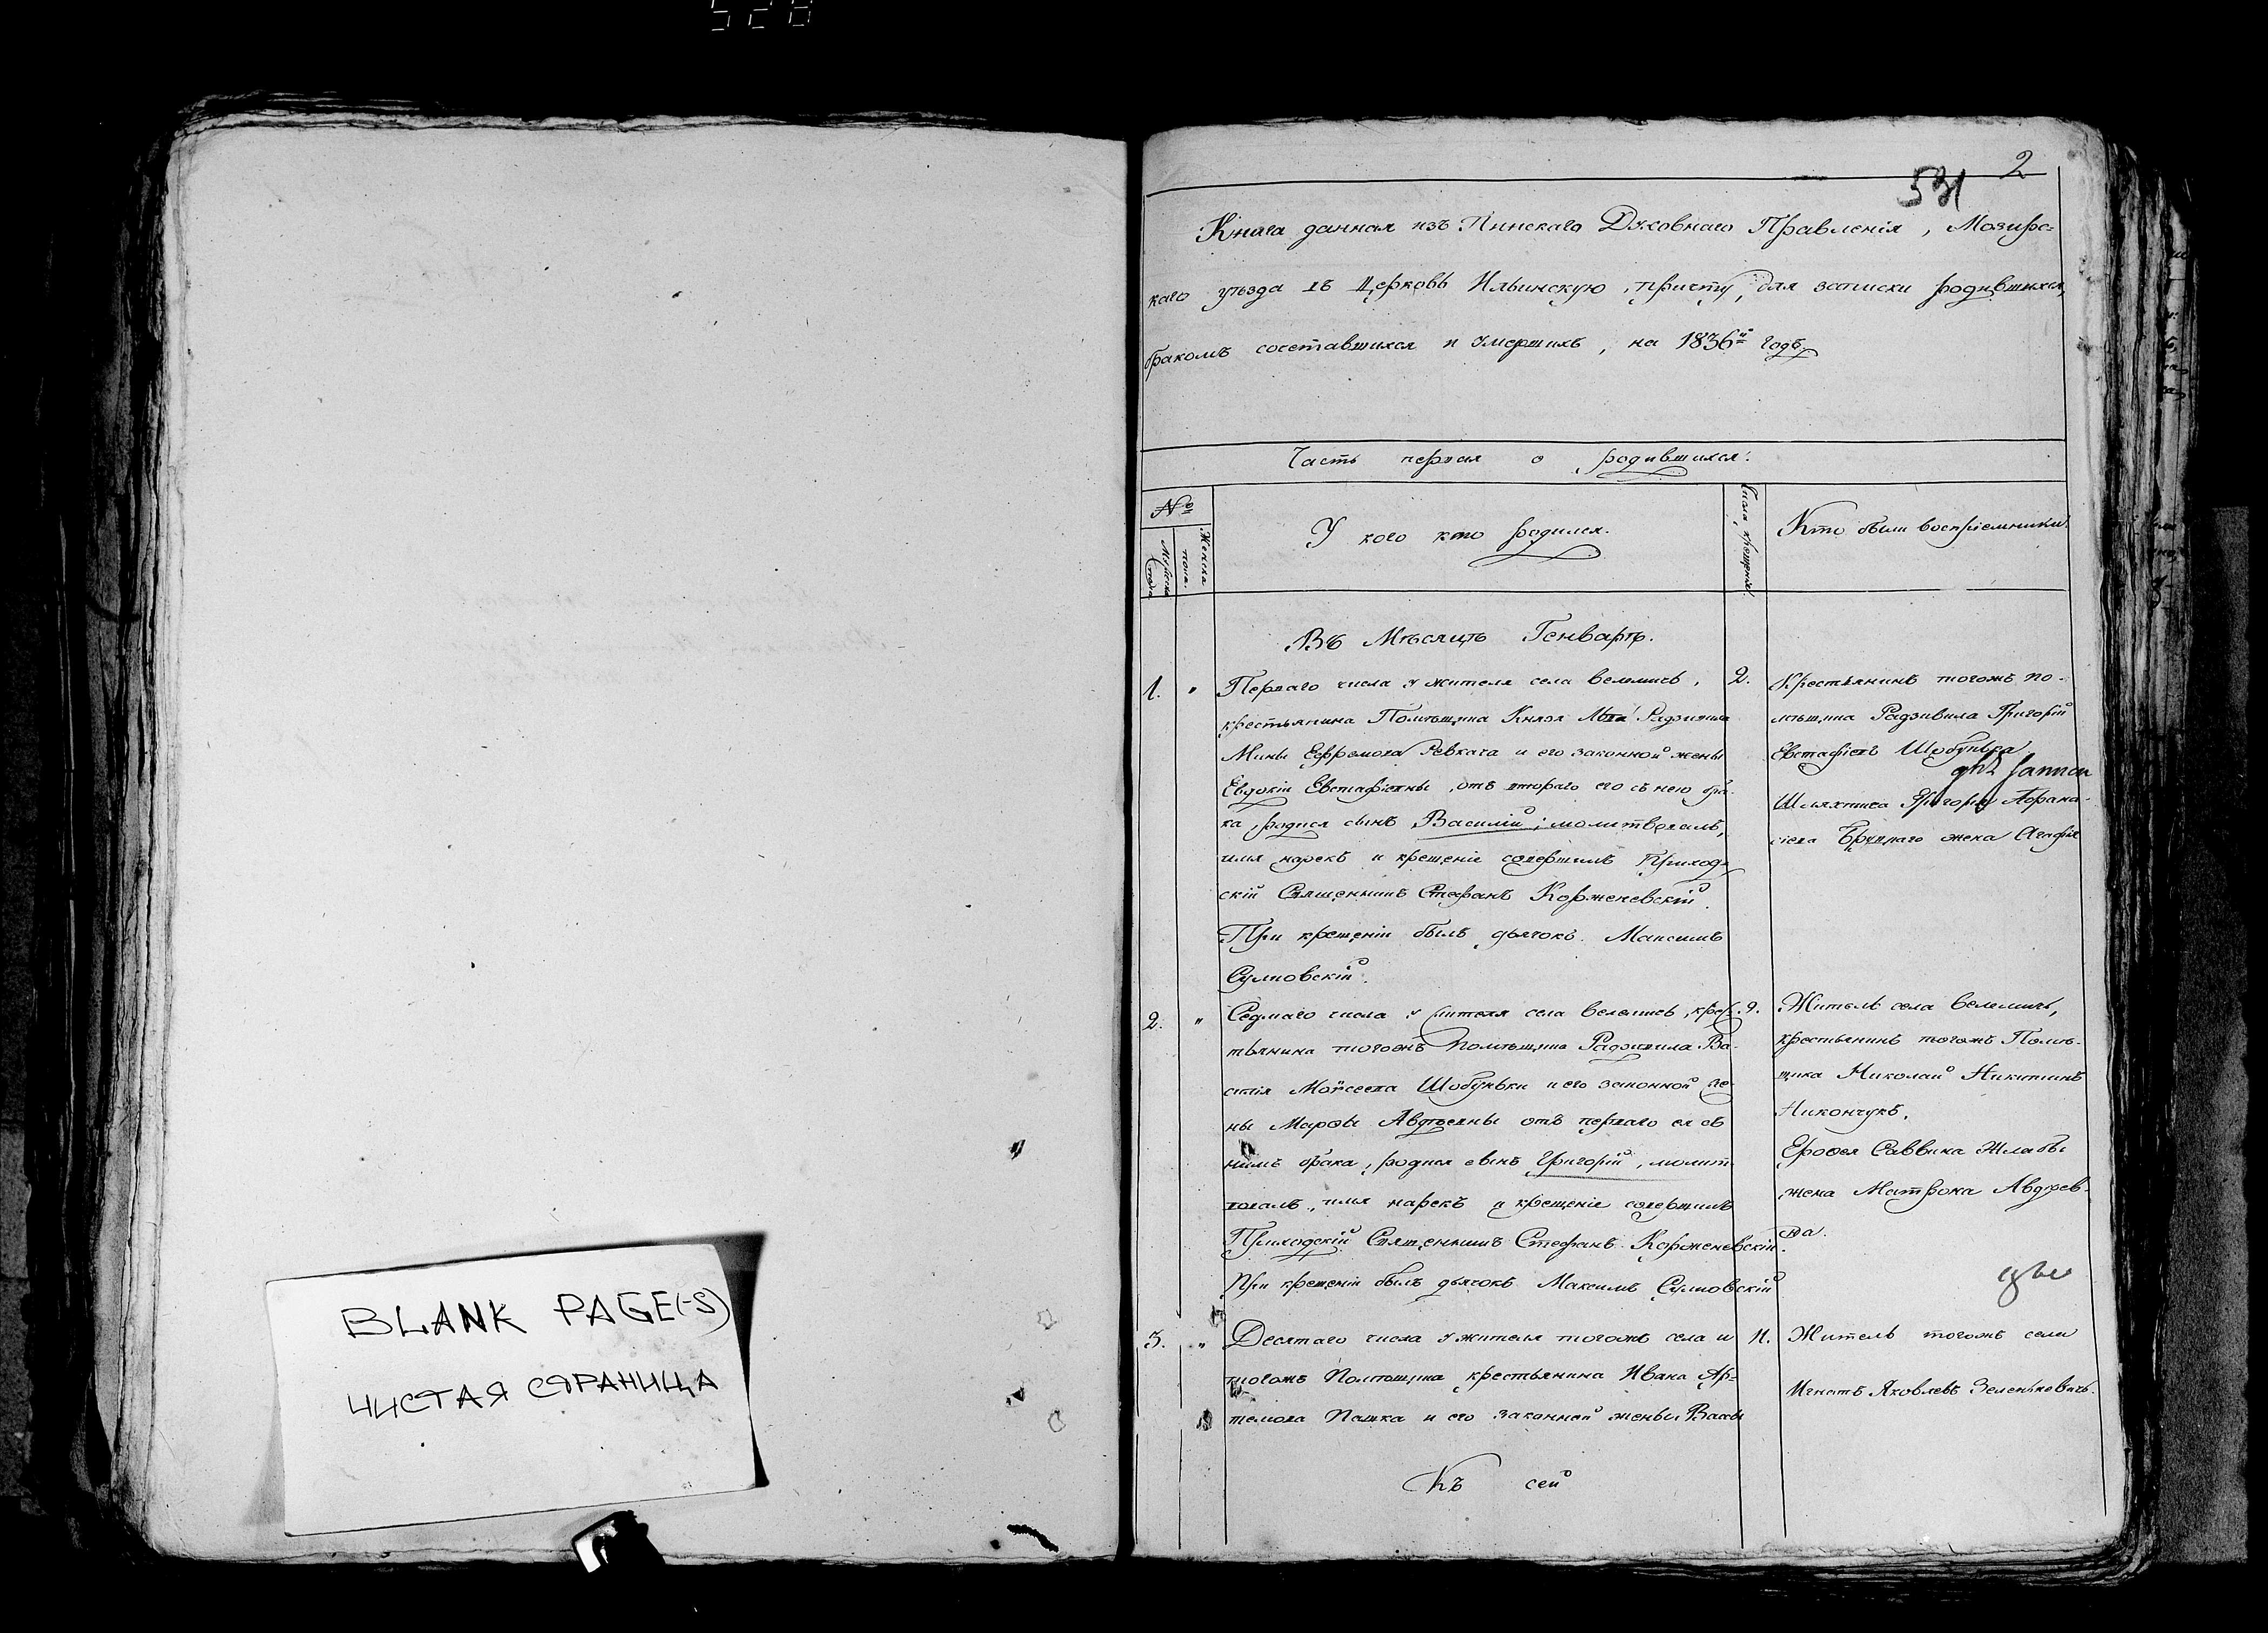 528
BLANK PAGE(-S)
ЧИСТАЯ СТРАНИЦА
2
531
Книга данная изъ Пинскаго Духовнаго Правленія, Мозирс=
каго уѣзда въ Церковь Ильинскую, причту, для записки родившихся,
бракомъ сочетавшихся и умершихъ, на 1836й годъ.
Часть первая о родившихся.
№
Мужеска пола.
Женска пола.
У кого кто родился.
Числа крещенія.
Кто были воспріемники
Въ Мѣсяцѣ Генварѣ.
1. " Перваго числа у жителя села Велемичь,
крестьянина Помѣщика Князя Льва Радзивила
Мины Ефремова Ревкача и его законной жены
Евдокіи Евстафіевны, отъ втораго его съ нею бра-
ка, родися сынъ Василій; молитвовалъ,
имя нарекъ и крещеніе совершилъ Приход=
скій Священникъ Стефанъ Корженевскій.
При крещеніи былъ дьячокъ Максимъ
Сулковскій.
2.
Крестьянинъ тогожъ по-
мѣщика Радзивила Григорій
Евстафіевъ Шобунька
Шляхтича Григорія Афана-
сіева жена Агафія
2. " Седмаго числа у жителя села Велемичь, крес-
тьянина тогожъ Помѣщика Радзивила Ва-
силія Моѵсеева Шобуньки и его законной же-
ны Марѳы Авдѣевны отъ перваго ея съ
нимъ брака, родися сынъ Григорій, молит-
вовалъ, имя нарекъ и крещеніе совершилъ
Приходскій Священникъ Стефанъ Корженевскій.
При крещеніи былъ дьячокъ Максимъ Сулковскій
9.
Житель села Велемичь,
крестьянинъ тогожъ Помѣ-
щика Николай Никитинъ
Никончукъ.
Ероѳея Саввина Жлабы
жена Матрона Авдѣев-
на.
3. " Десятаго числа у жителя тогожъ села и
тогожъ Помѣщика крестьянина Ивана Ар=
темова Пашка и его законной жены Вассы
11.
Житель тогожъ села
Игнатъ Яковлевъ Зеленкевичь.
Къ сей